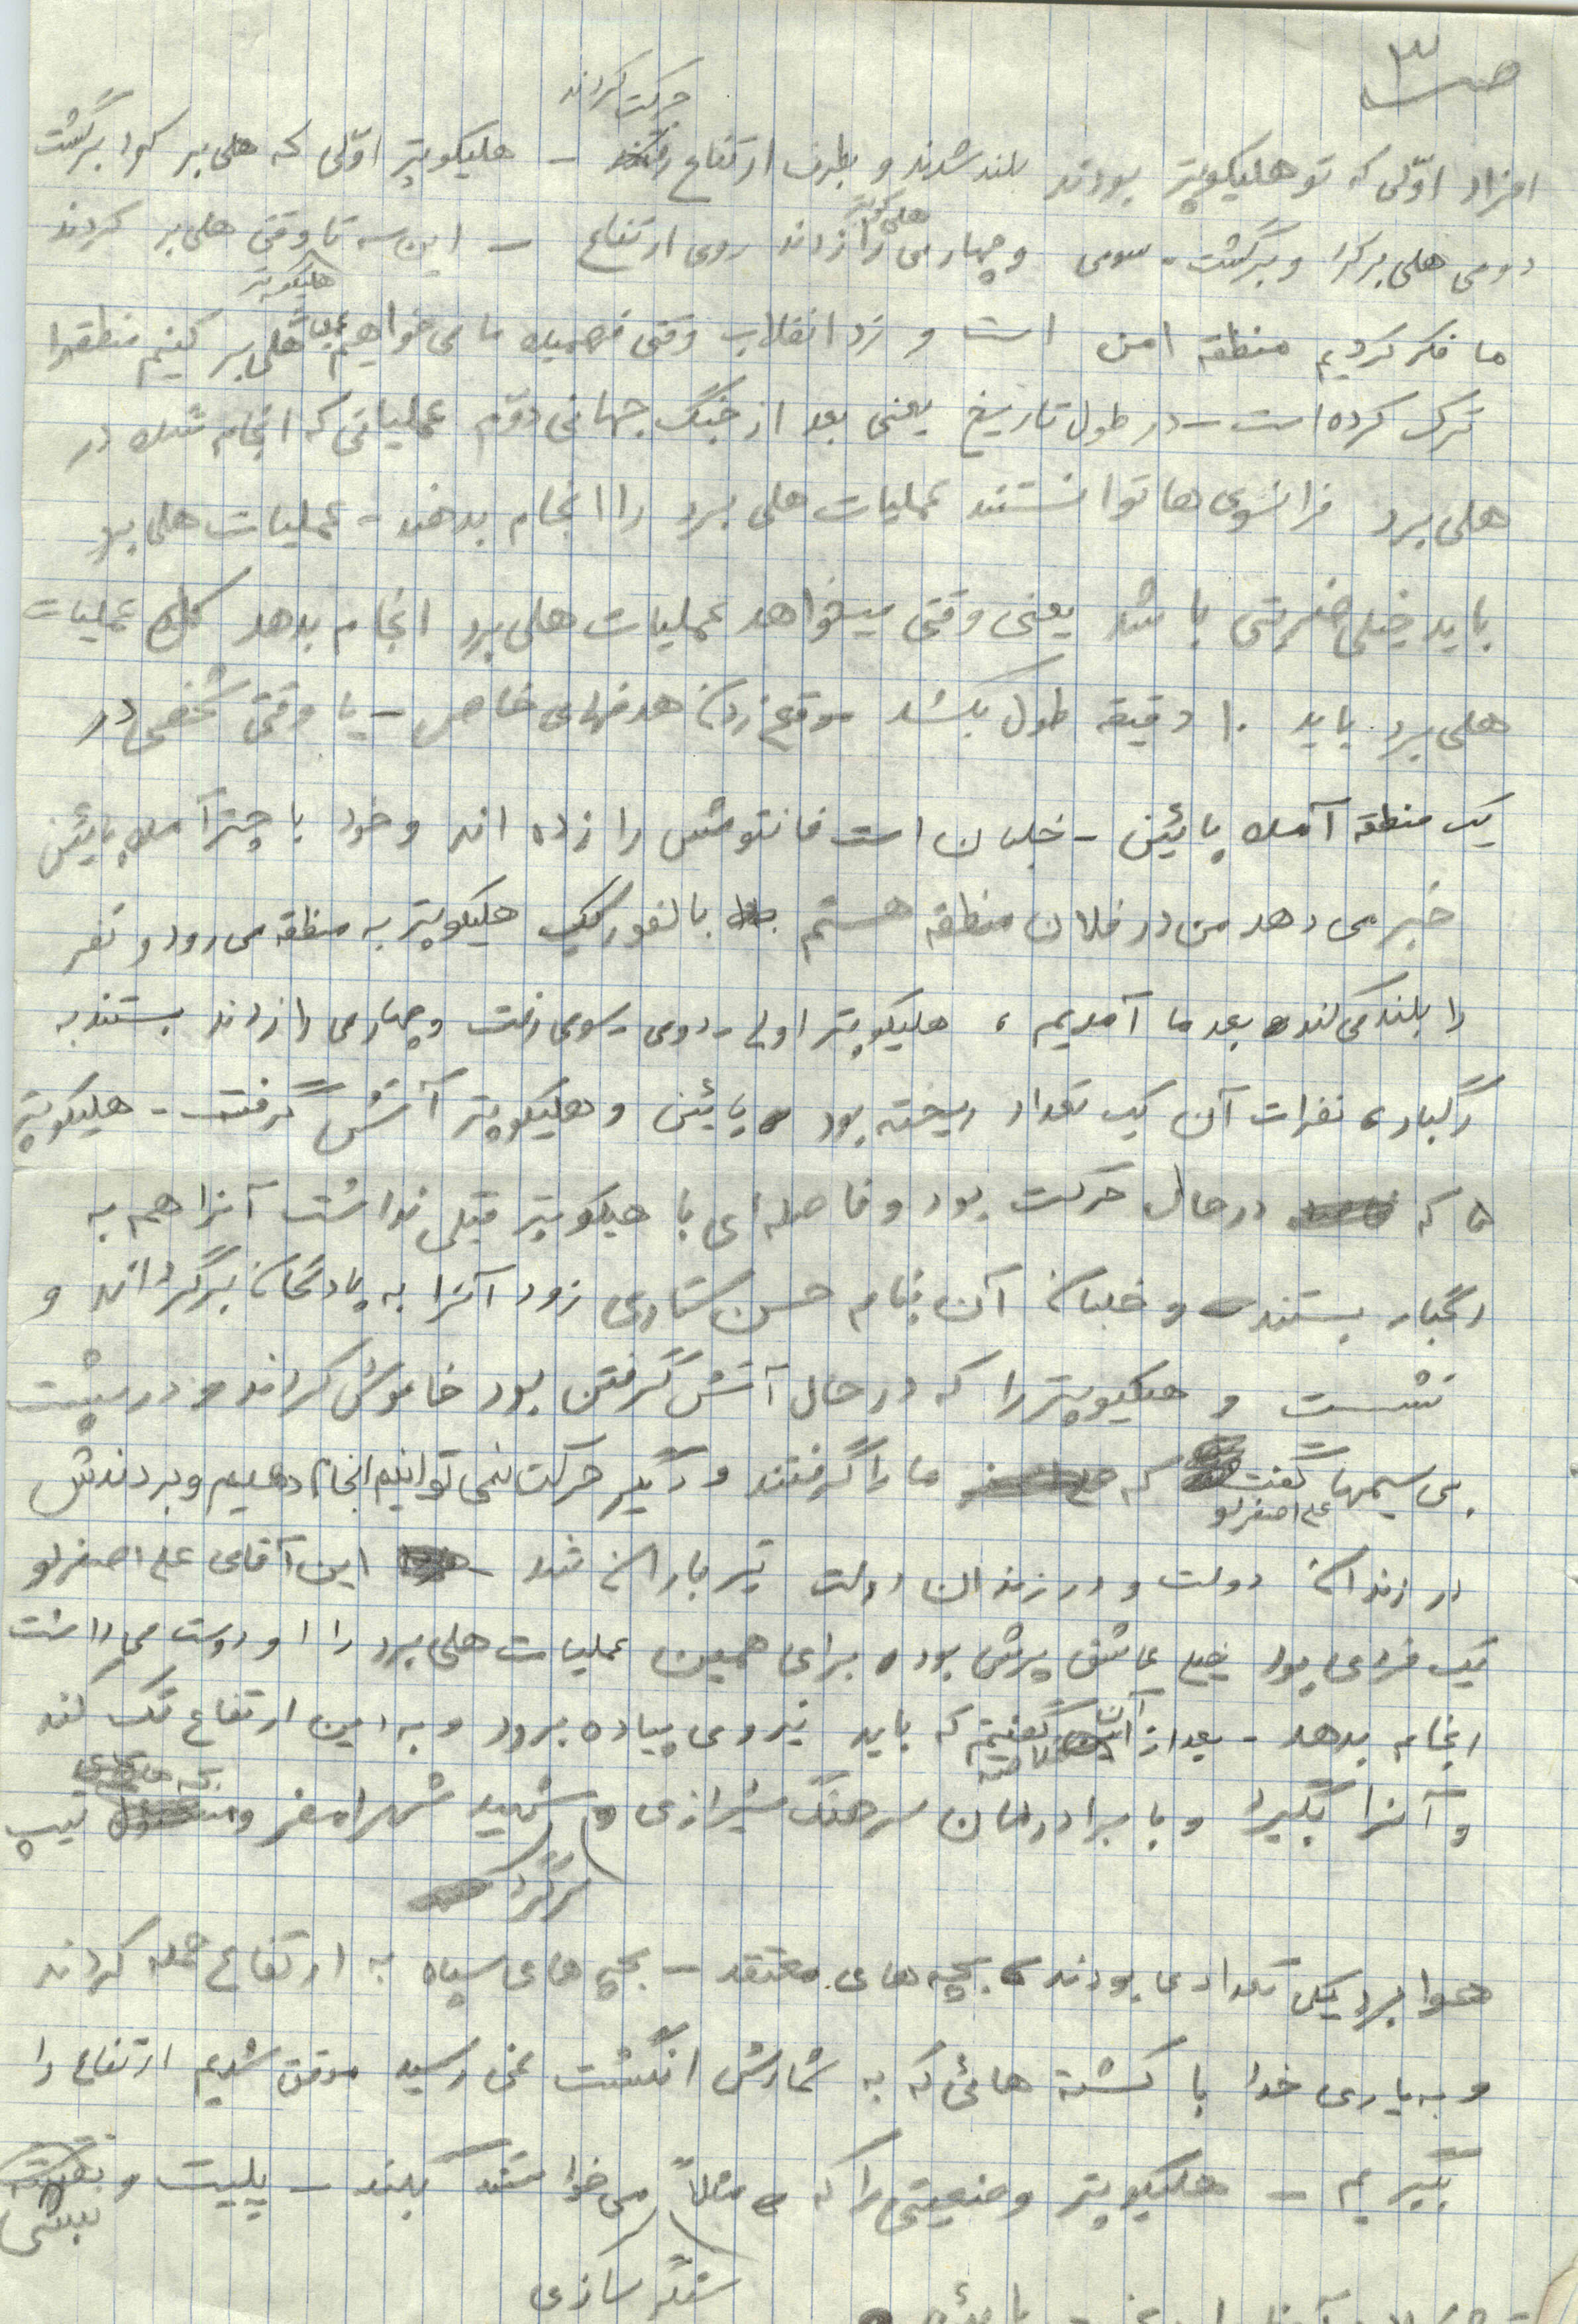 ص ۳
حرکت کردند
افراد اوّلی که تو هلیکوپتر بودند بلند شدند و بطرف ارتفاع رفتند – هلیکوپتر اوّلی که هلی برد کرد برگشت
هلی کوپتر
دومی هلی برد کرد و برگشت - سومی و چهارمی را زدند روی ارتفاع – این سه تا وقتی هلی برد کردند
هلیکوپتر
ما فکر کردیم منطقه امن است و ضد انقلاب وقتی فهمیده ما می خواهیم عملیات هلی برد کنیم منطقه را
ترک کرده است – در طول تاریخ یعنی بعد از جنگ جهانی دوّم عملیاتی که انجام شده در
هلی برد فرانسوی ها توانستند عملیات هلی برد را انجام بدهند - عملیات هلی برد
باید خیلی ضربتی باشد یعنی وقتی میخواهد عملیات هلی برد انجام بدهد کل عملیات
هلی برد باید ۱۰ دقیقه طول بکشد موقع زدن هدفهای خاص – یا وقتی شخصی در
یک منطقه آمده پائین – خلبان است فانتومش را زده اند و خود با چتر آمده پائین
خبر می دهد من در فلان منطقه هستم بالفور یک هلیکوپتر به منطقه می رود و نفر
را بلند می کند بعد ما آمدیم ، هلیکوپتر اولی - دومی - سومی رفت و چهارمی را زدند بستند به
رگبار ، نفرات آن یک تعداد ریخته بود پائین و هلیکوپتر آتش گرفت - هلیکوپتر
۵ که در حال حرکت بود و فاصله ای با هلیکوپتر قبلی نداشت آنرا هم به
رگبار بستند و خلبان آن بنام حسن ستاری زود آنرا به پادگان برگرداند و
نشست و هلیکوپتر را که در حال آتش گرفتن بود خاموش کردند و در پشت
بی سیمها گفت که ما را گرفتند و دیگر حرکت نمی توانیم انجام دهیم و بردندش
علی اصغرلو
در زندان دولتو و در زندان دولتو تیرباران شد – این آقای علی اصغرلو
یک فردی بود خیلی عاشق پرش بود ، برای همین عملیات هلی برد را او دوست می داشت
انجام بدهد - بعد از آن گفتیم که باید نیروی پیاده برود و به این ارتفاع تک کند
و آنرا بگیرد و با برادرمان سرهنگ شیرازی و شهید شهرامفر و تیپ
سرگرد
هوابرد یک تعدادی بودند بچه های معتقد – بچه های سپاه به ارتفاع حمله کردند
و به یاری خدا با کشته هائی که به شمارش انگشت نمی رسید موفق شدیم ارتفاع را
بگیریم – هلیکوپتر وضعیتی را که مثلاً می خواستند بکنند – پلیت و
سنگر سازی